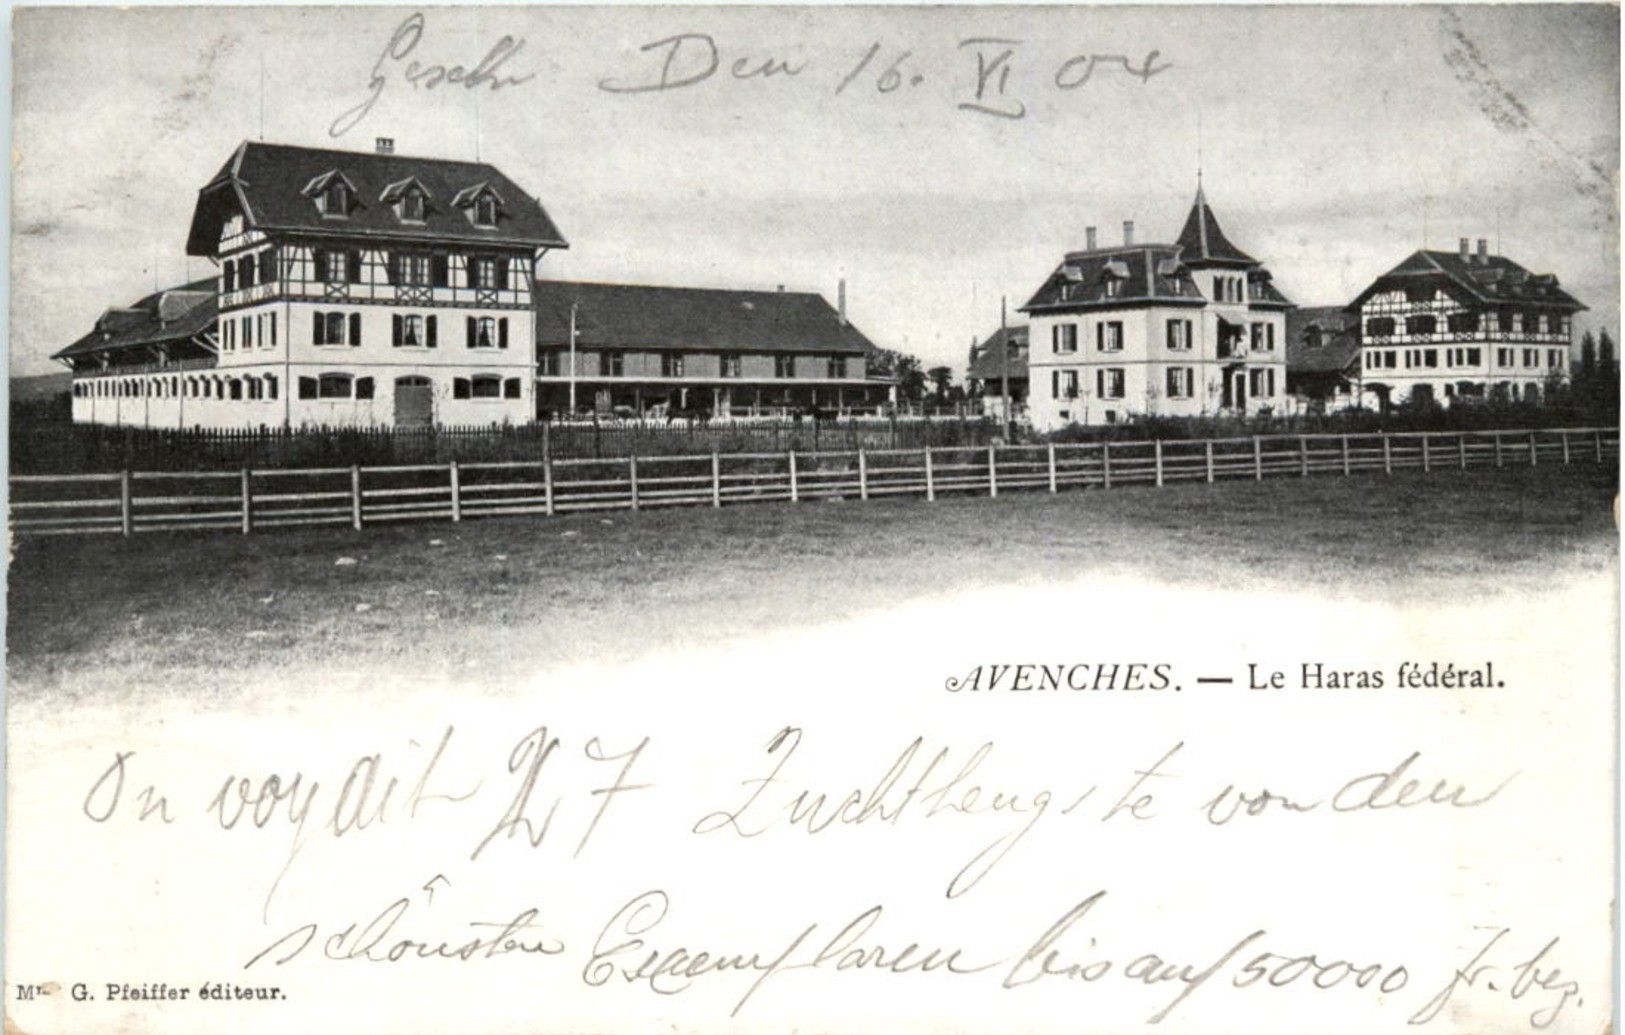 Gesch. Den 16. VI 04
AVENCHES. — Le Haras fédéral.
On voy dit 7 Zuchthengste von den
schönsten Exemplaren bis auf 50000 fr. bez.
Mr. G. Pfeiffer éditeur.